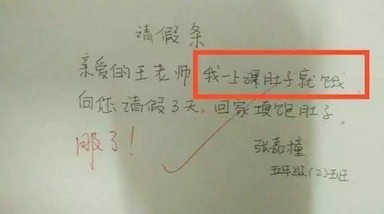 请假条
亲爱的王老师 我一上课肚子就饿
向您请假3天,回家填饱肚子。
服了!
张嘉撞
五年级(2)五班